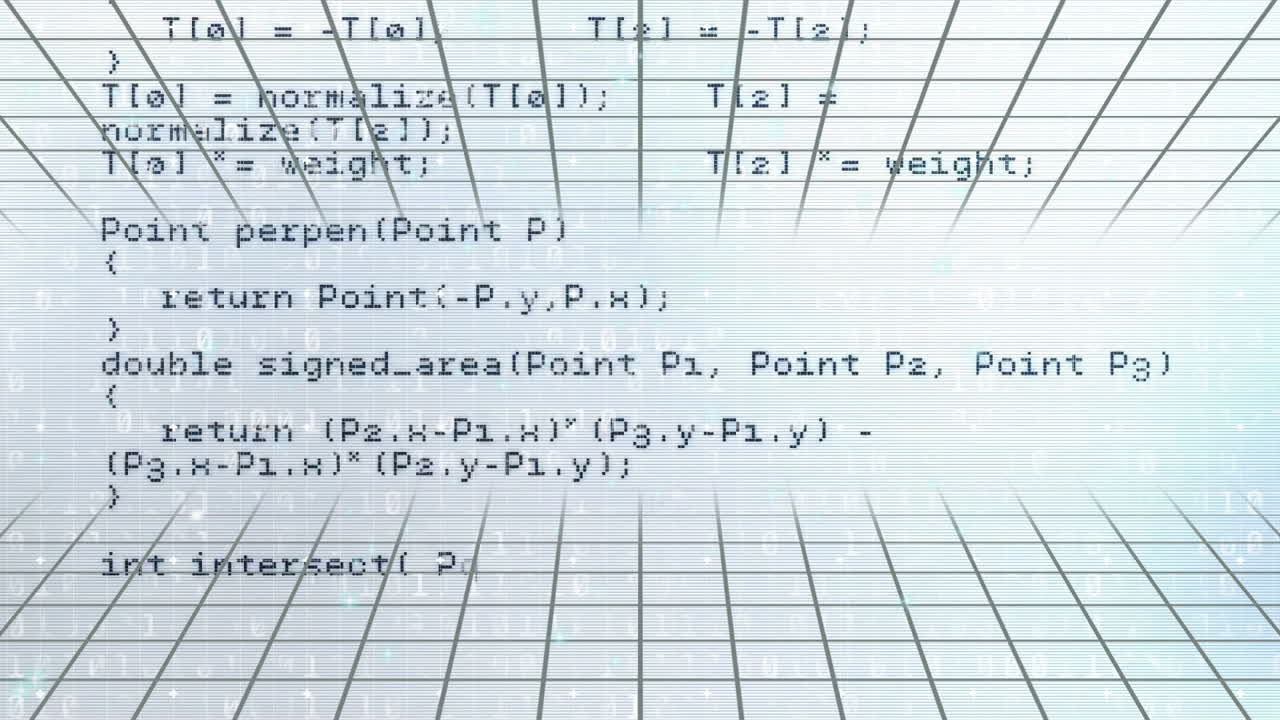 T[0] = -T[0];          T[2] = -T[2];
}
T[0] = normalize(T[0]);     T[2] =
normalize(T[2]);
T[0] *= weight;              T[2] *= weight;
Point perpen(Point P)
{
return Point(-P.y,P.x);
}
double signed_area(Point P1, Point P2, Point P3)
{
return (P2.x-P1.x)*(P3.y-P1.y) -
(P3.x-P1.x)*(P2.y-P1.y);
}
int intersect( Po